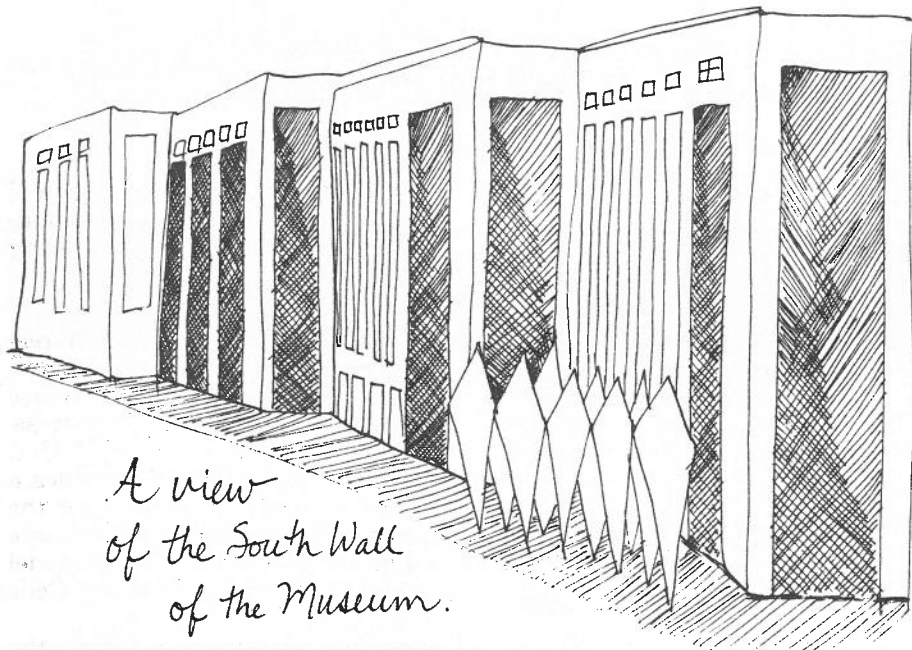 A view
of the South Wall
of the Museum.